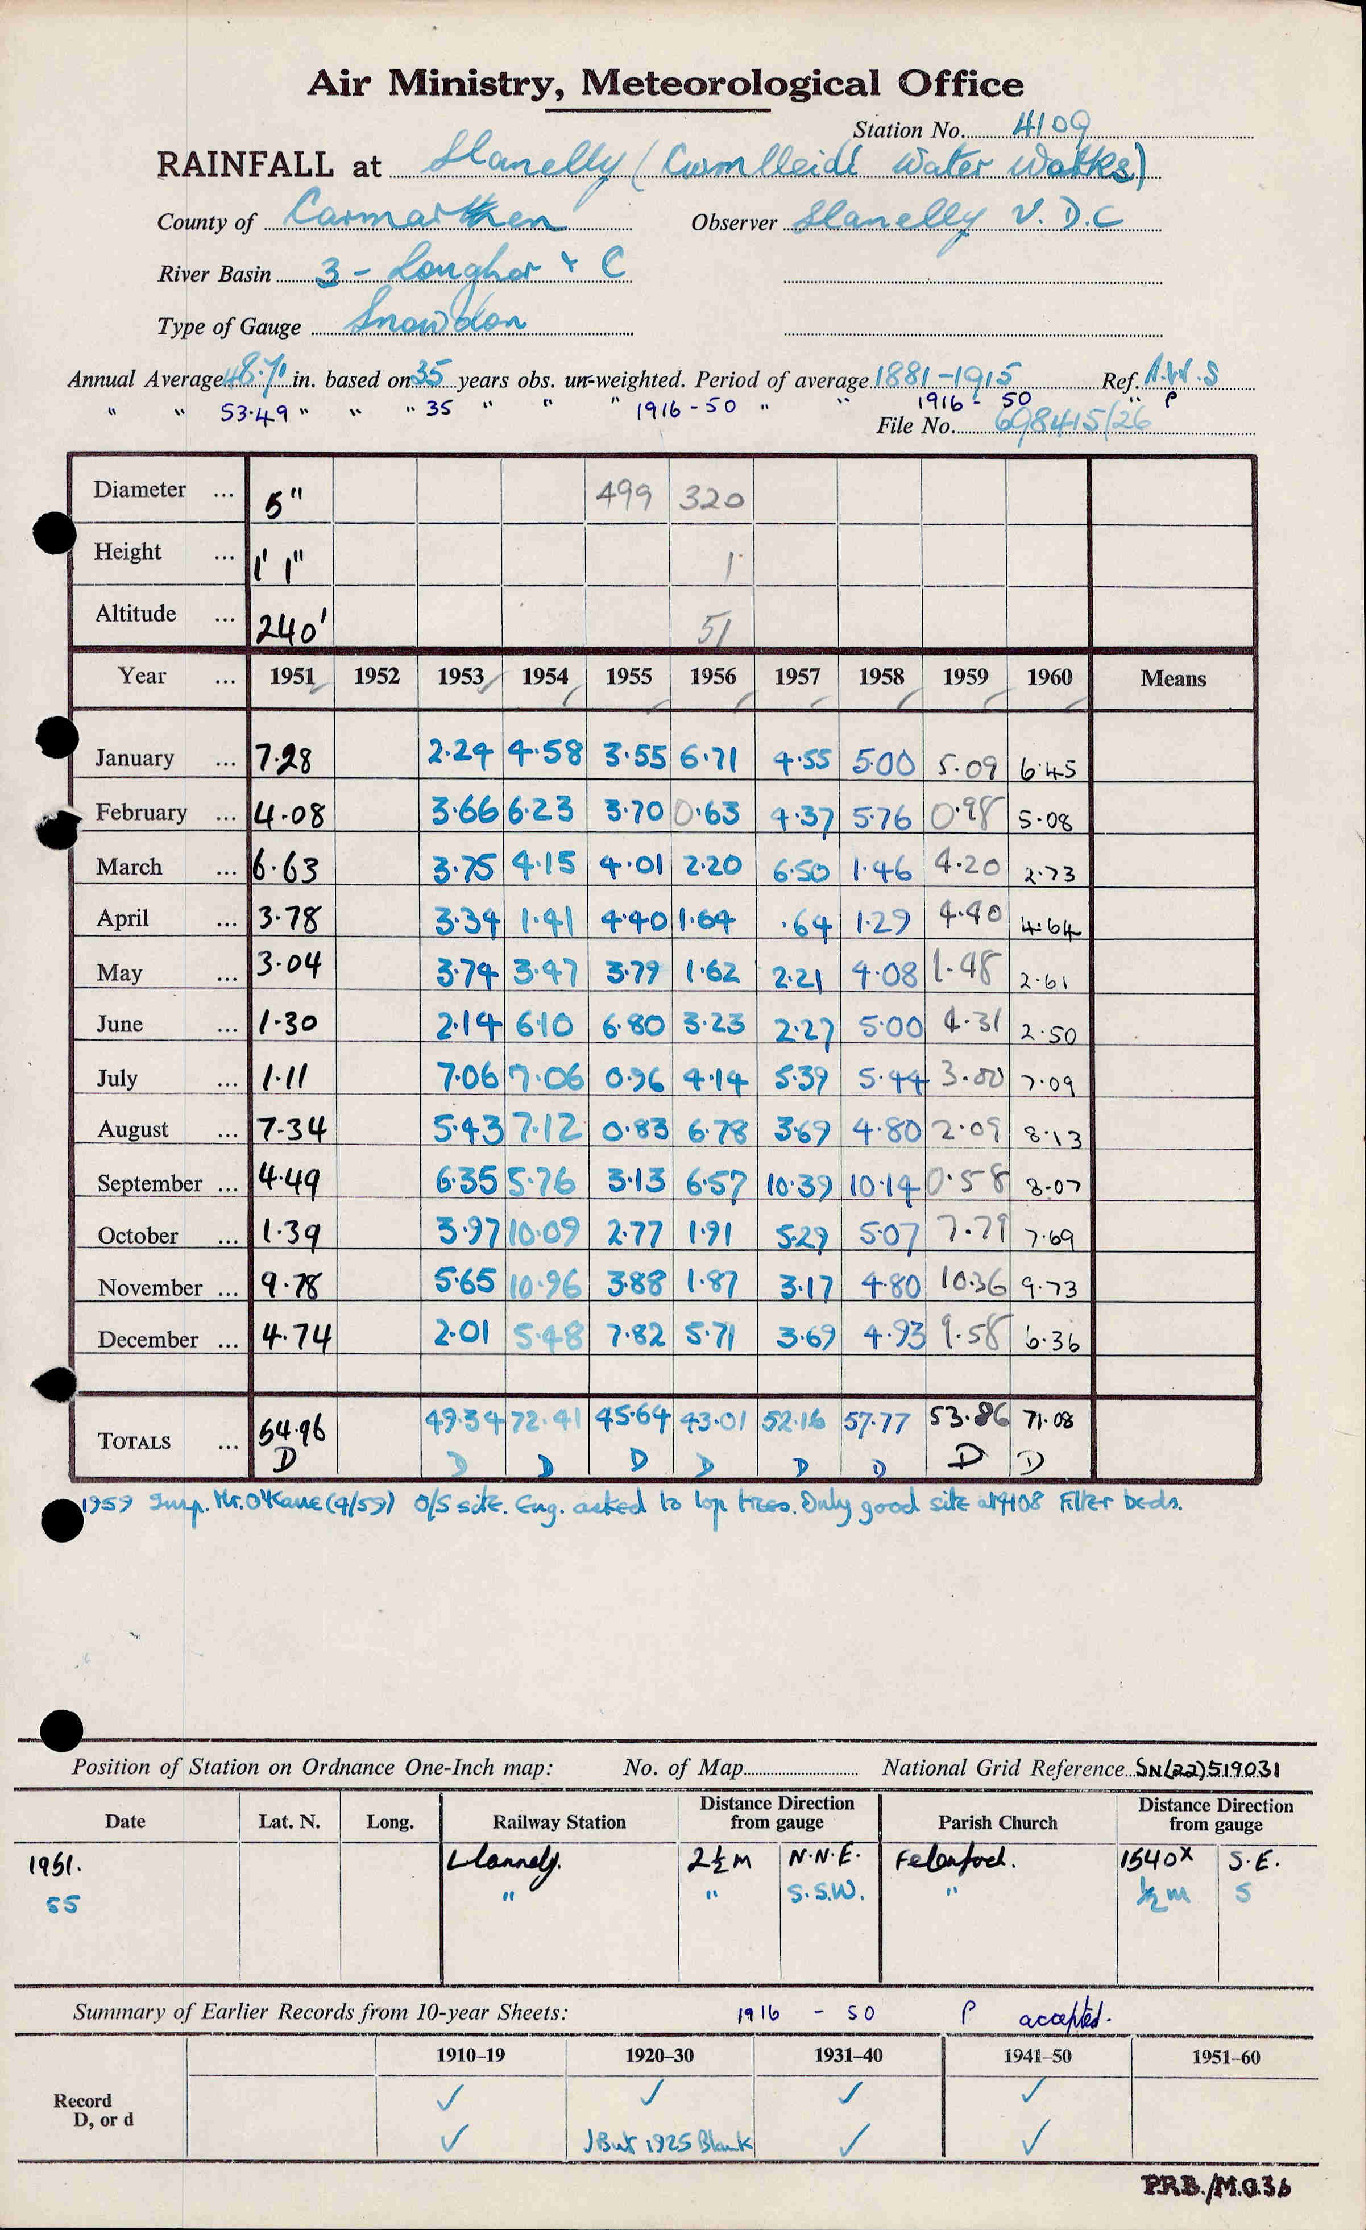 Air Ministry, Meteorological Office
Station No. 4109
RAINFALL at Llanelly (Cwmlleidi Water Works)
County of Carmarthen Observer Llanelly U.D.C
River Basin 3 - Loughor & C
Type of Gauge Snowdon
Annual Average 48.71 in. based on 35 years obs. un-weighted. Period of average 1881-1915 Ref. A.W.S
" " 53.49 " " " 35 " " " 1916-50 " " 1916 - 50 " P
File No. 698415/26
Diameter ... 5" 499 320
Height ... 1' 1" 1
Altitude ... 240' 51
Year ... 1951 1952 1953 1954 1955 1956 1957 1958 1959 1960 Means
January ... 7.28 2.24 4.58 3.55 6.71 4.55 5.00 5.09 6.45
February ... 4.08 3.66 6.23 3.70 0.63 4.37 5.76 0.98 5.08
March ... 6.63 3.75 4.15 4.01 2.20 6.50 1.46 4.20 2.73
April ... 3.78 3.34 1.41 4.40 1.64 .64 1.29 4.40 4.64
May ... 3.04 3.74 3.47 3.79 1.62 2.21 4.08 1.48 2.61
June ... 1.30 2.14 6.10 6.80 3.23 2.27 5.00 4.31 2.50
July ... 1.11 7.06 7.06 0.96 4.14 5.39 5.44 3.00 7.09
August ... 7.34 5.43 7.12 0.83 6.78 3.69 4.80 2.09 8.13
September ... 4.49 6.35 5.76 3.13 6.57 10.39 10.14 0.58 8.07
October ... 1.39 3.97 10.09 2.77 1.91 5.29 5.07 7.79 7.69
November ... 9.78 5.65 10.96 3.88 1.87 3.17 4.80 10.36 9.73
December ... 4.74 2.01 5.48 7.82 5.71 3.69 4.93 9.58 6.36
TOTALS ... 54.96 49.34 72.41 45.64 43.01 52.16 57.77 53.86 71.08
D D D D D D D D D
1959 Insp. Mr. O'Kane (4/59) O/S site. Eng. asked to lop trees. Only good site at 4108 Filter beds.
Position of Station on Ordnance One-Inch map: No. of Map National Grid Reference SN(22)519031
Date Lat. N. Long. Railway Station Distance Direction from gauge Parish Church Distance Direction from gauge
1951. Llannely. 2½ m N.N.E. Felenfoel. 1540x S.E.
55 " " S.S.W. " ½ m S
Summary of Earlier Records from 10-year Sheets: 1916 - 50 P accepted.
1910-19 1920-30 1931-40 1941-50 1951-60
Record ✓ ✓ ✓ ✓
D, or d ✓ ✓ But 1925 Blank ✓ ✓
P.R.B./M.O.36